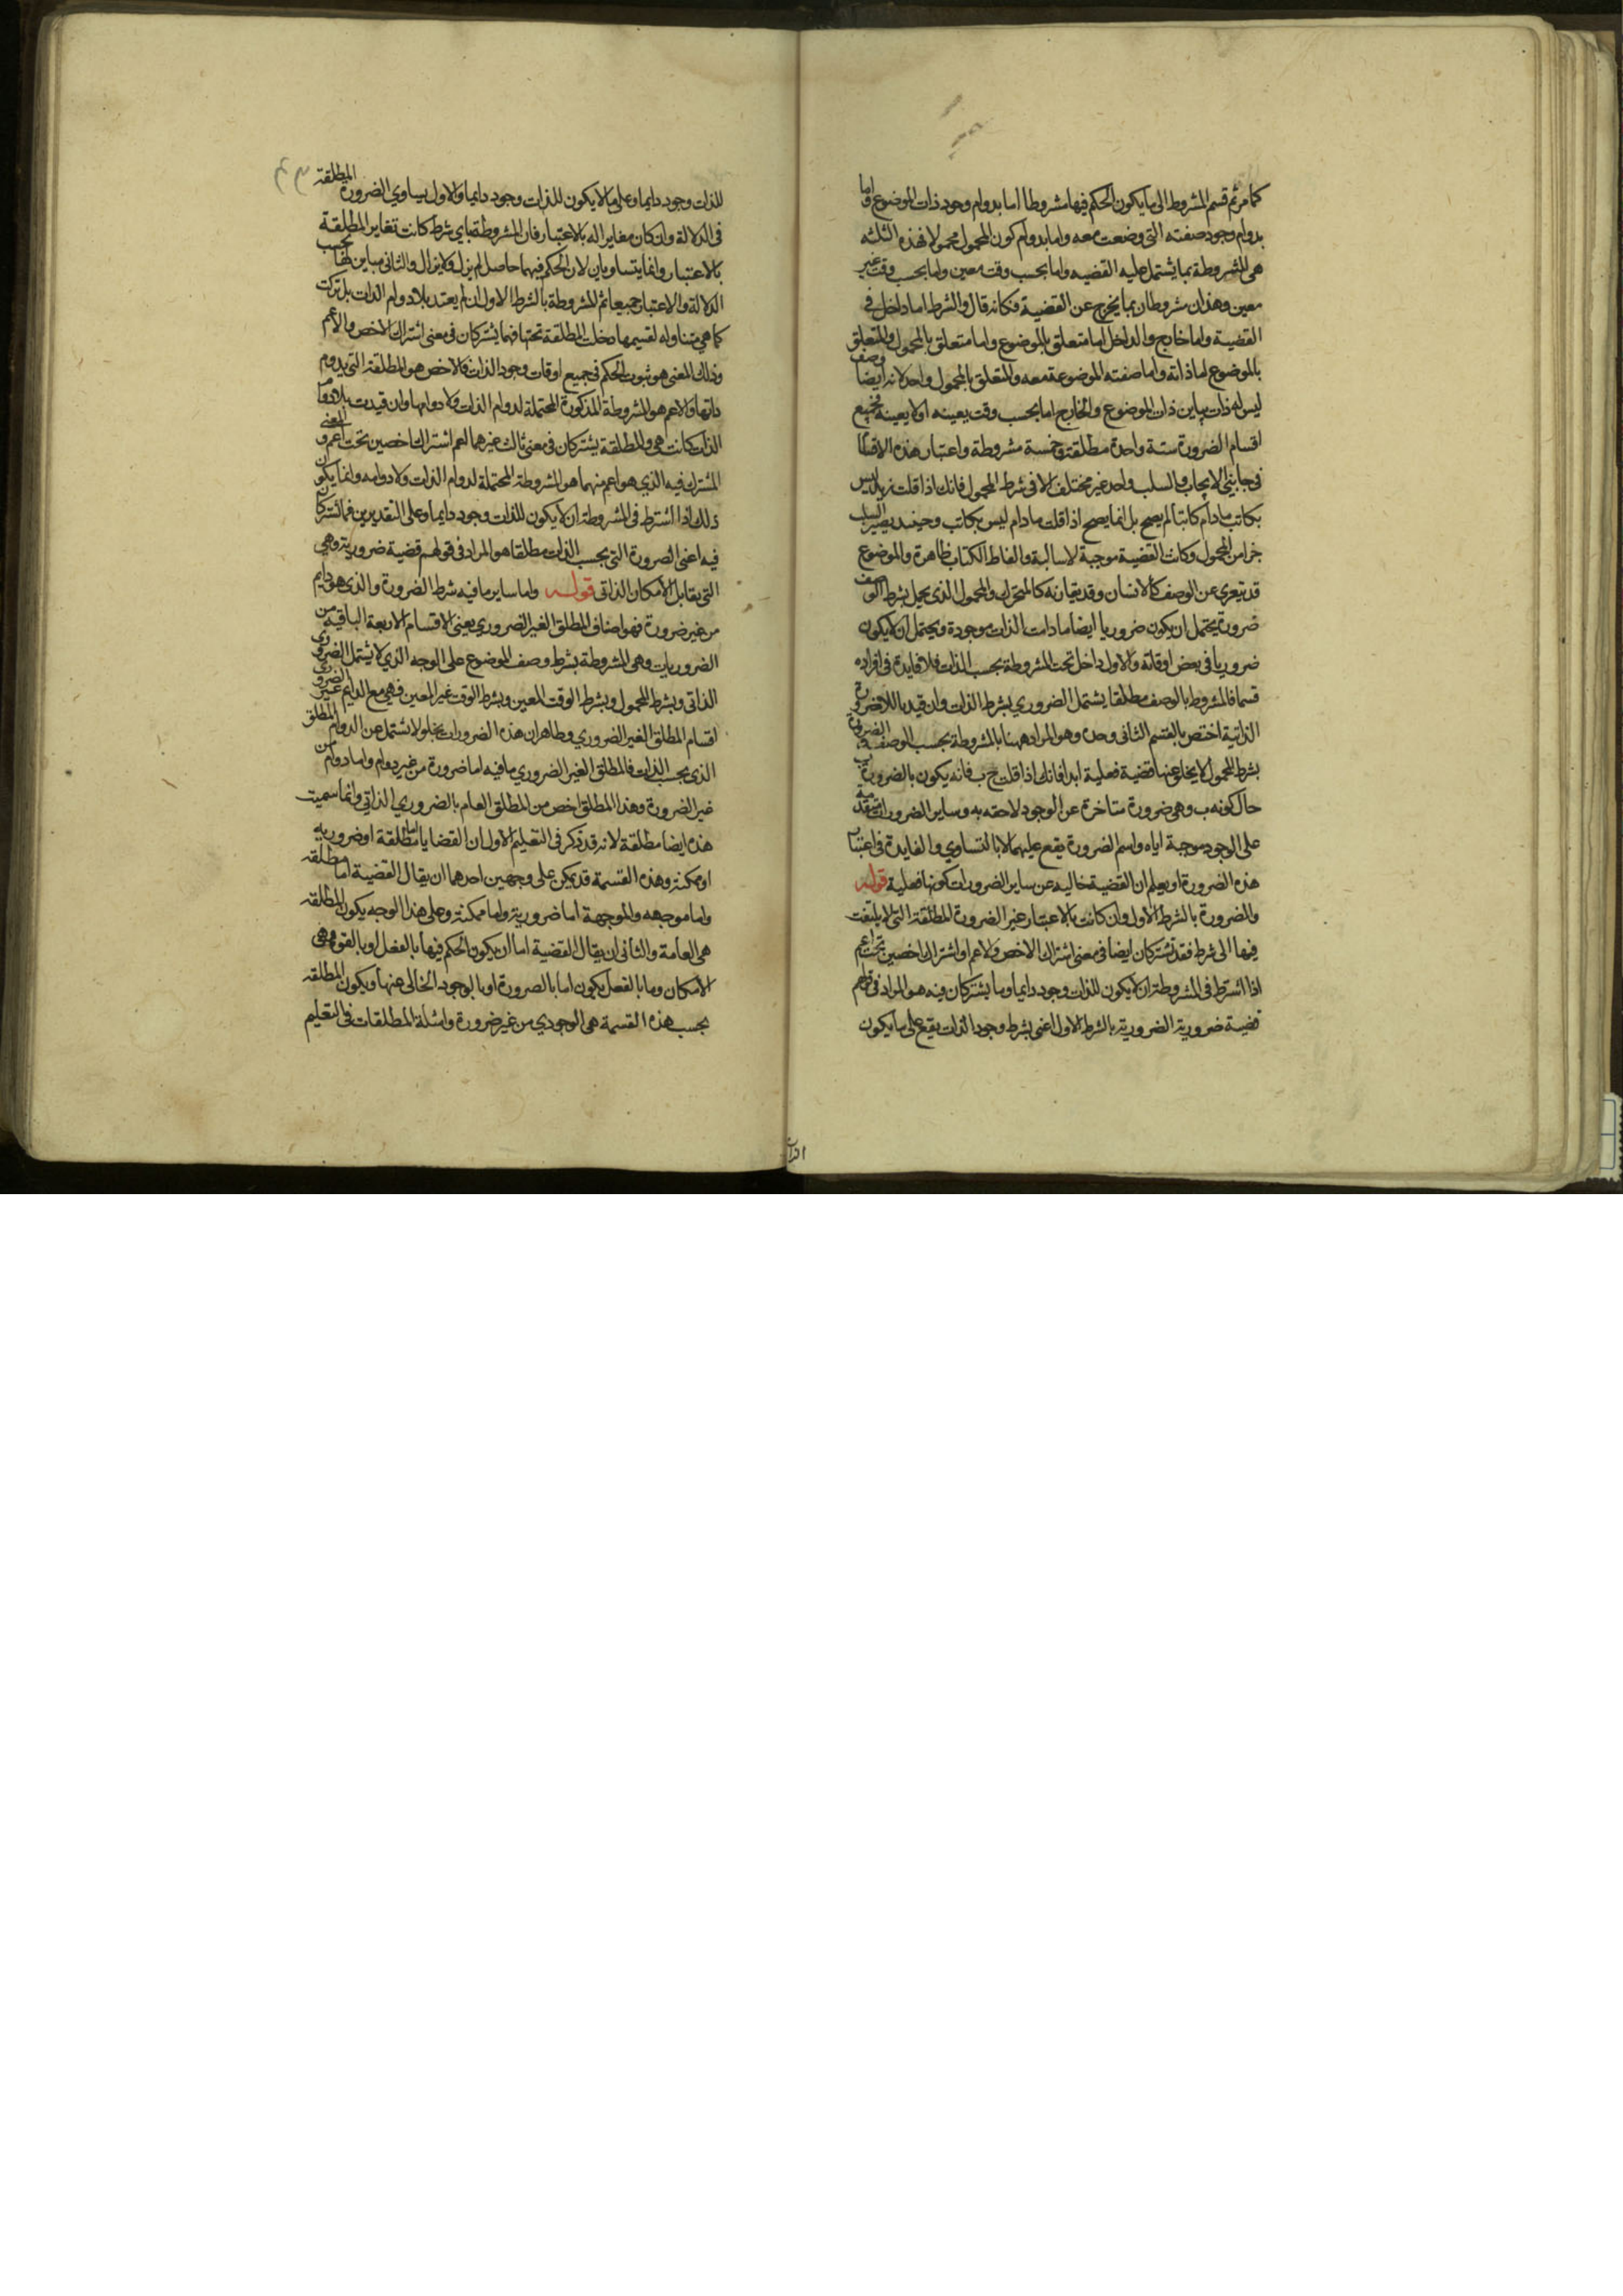 كما مر ثم قسم المشروط الى ما يكون الحكم فيها مشروطا اما بدوام وجود ذات الموضوع واما
بدوام وجود صفته التى وضعت معه واما بدوام كون المحمول محمولا فهذه الثلثه
هى المشروطة بما يشتمل عليه القضيه واما بحسب وقت معين واما بحسب وقت غير
معين وهذان مشروطان بما يخرج عن القضية فكانه قال والشرط اما داخل فى
القضية واما خارج والداخل اما متعلق بالموضوع واما متعلق بالمحمول والمتعلق
بالموضوع اما ذاته واما صفته الموضوعة معه والمتعلق بالمحمول واحد لانه ايضا وصف
ليس له ذات يباين ذات الموضوع والخارج اما بحسب وقت بعينه او لا بعينه فجميع
اقسام الضرورة ستة واحدة مطلقة وخمسة مشروطة واعتبار هذه الاقسام
فى جانبى الايجاب والسلب واحد غير مختلف الا فى شرط المحمول فانك اذا قلت زيد ليس
بكاتب مادام كاتبا لم يصح بل انما يصح اذا قلت مادام ليس بكاتب وحينئد يصير السلب
جزا من المحمول وكانت القضية موجبة لا سالبة والفاظ الكتاب ظاهرة والموضوع
قد يتعرى عن الوصف كالانسان وقد يقارنه كالمتحرك والمحمول الذى يحمل بشرط الوصف
ضرورة يحتمل ان يكون ضروريا ايضا مادامت الذات موجودة ويحتمل ان لا يكون
ضروريا فى بعض اوقاته والاول داخل تحت المشروطة بحسب الذات فلا فايدة فى افراده
قسما فالمشروط بالوصف مطلقا يشتمل الضروري بشرط الذات وان قيد باللاضرورة
الذاتية اختص بالقسم الثانى وحده وهو المراد ههنا بالمشروطة بحسب الوصف والضرورة
بشرط المحمول لا يخلو عنها قضية فعلية ابدا فانك اذا قلت ج ب فانه يكون بالضرورة ب
حال كونه ب وهى ضرورة متاخرة عن الوجود لاحقه به وساير الضرورات متقدمة
على الوجود موجبة اياه واسم الضرورة يقع عليهما لا بالتساوي والفايدة فى اعتبار
هذه الضرورة ان يعلم ان القضية خاليه عن ساير الضرورات كونها فعلية قوله
والضرورة بالشرط الاول وان كانت بالاعتبار غير الضرورة المطلقة التى لا يلتفت
فيها الى شرط فقد تشتركان ايضا فى معنى اشتراك الاخص والاعم او اشتراك اخصين تحت اعم
اذا اشترط فى المشروطة ان لا يكون للذات وجود دايما وما يشتركان فيه هو المراد فى قولهم
قضية ضرورية الضرورية بالشرط الاول اعنى بشرط وجود الذات يقع على ما يكون
للذات وجود دايما وعلى ما لا يكون للذات وجود دايما والاول يساوي الضرورة المطلقة
فى الدلالة وان كان مغايرا له بالاعتبار فان المشروطة باي شرط كانت تغاير المطلقة
بالاعتبار وانما يتساويان لان الحكم فيهما حاصل لم يزل ولا يزال والثانى مباين لها بحسب
الدلالة والاعتبار جميعا ثم المشروطة بالشرط الاول ان لم يعتد بلادوام الذات بل تركت
كما هي متناوله لقسيمها دخلت المطلقة تحتها فهما يشتركان فى معنى اشتراك الاخص والاعم
وذلك المعنى هو ثبوت الحكم فى جميع اوقات وجود الذات فالاخص هو المطلقة التى يدوم
ذاتها والاعم هو المشروطة المذكورة المحتملة لدوام الذات ولا دوامها وان قيدت بلادوام
الذات كانت هى والمطلقة يشتركان فى معنى ثالث غيرهما اعم اشتراك اخصين تحت اعم والمعنى
المشترك فيه الذي هو اعم منهما هو المشروطة المحتملة لدوام الذات ولا دوامه وانما يكون
ذلك اذا اشترط فى المشروطة ان لا يكون للذات وجود دايما وعلى التقديرين فما اشتركا
فيه اعنى الضرورة التى بحسب الذات مطلقا هو المراد فى قولهم قضية ضرورية وهى
التى يقابل الامكان الذاتى قوله واما ساير ما فيه شرط الضرورة والذى هو دايم
من غير ضرورة فهو اصناف المطلق الغير الضروري يعنى الاقسام الاربعة الباقيه من
الضروريات وهى المشروطة بشرط وصف الموضوع على الوجه الذي لا يشتمل الضرورى
الذاتى وبشرط المحمول وبشرط الوقت المعين وبشرط الوقت غير المعين فهى مع الدايم غير الضرورى
اقسام المطلق الغير الضروري وظاهر ان هذه الضرورات يخلو لا يشتمل عن الدوام المطلق
الذى بحسب الذات فالمطلق الغير الضروري ما فيه اما ضرورة من غير دوام واما دوام من
غير الضرورة وهذا المطلق اخص من المطلق العام بالضروري الذاتي وانما سميت
هذه ايضا مطلقة لانه قد ذكر فى التعليم الاول ان القضايا اما مطلقة او ضروريه
او ممكنة وهذه القسمة قد يمكن على وجهين احدهما ان يقال القضية اما مطلقه
واما موجهه والموجهة اما ضرورية واما ممكنة وعلى هذا الوجه يكون المطلقه
هى العامة والثانى ان يقال القضية اما ان يكون الحكم فيها بالفعل او بالقوة وهى
الامكان وما بالفعل يكون اما بالضرورة او بالوجود الخالى عنها ويكون المطلقه
بحسب هذه القسمة هى الوجودي من غير ضرورة وامثلة المطلقات فى التعليم